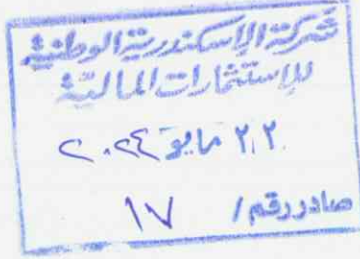 شركة الإسكندرية الوطنية
للإستثمارات المالية
٢٢ مايو ٢٠٢٤
صادر رقم / ١٧